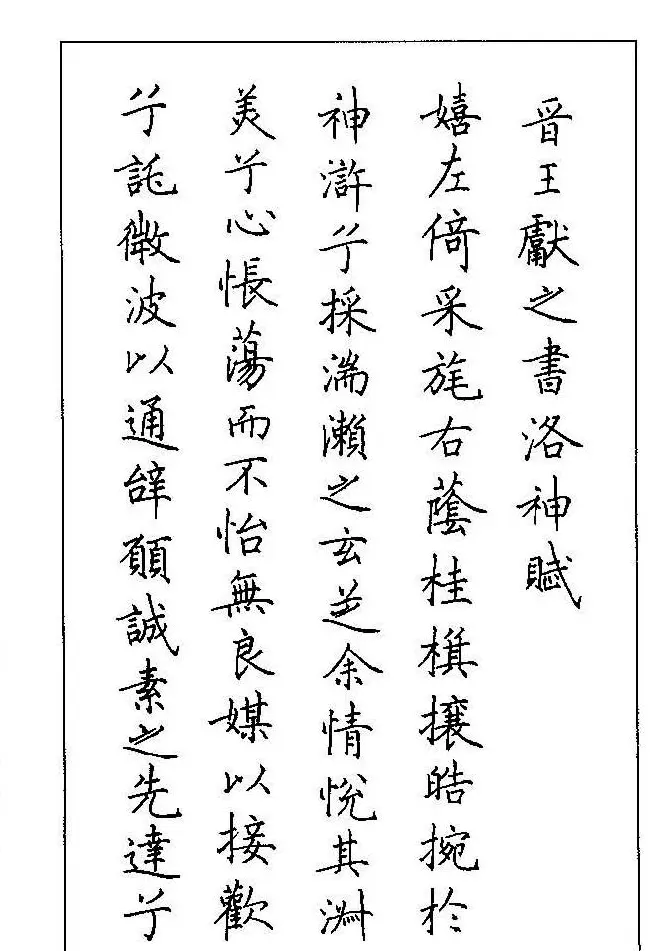 晉王獻之書洛神賦
嬉左倚采旄右蔭桂旗攘皓捥於
神滸兮採湍瀨之玄芝余情悅其淑
美兮心悵蕩而不怡無良媒以接歡
兮託微波以通辭願誠素之先達兮